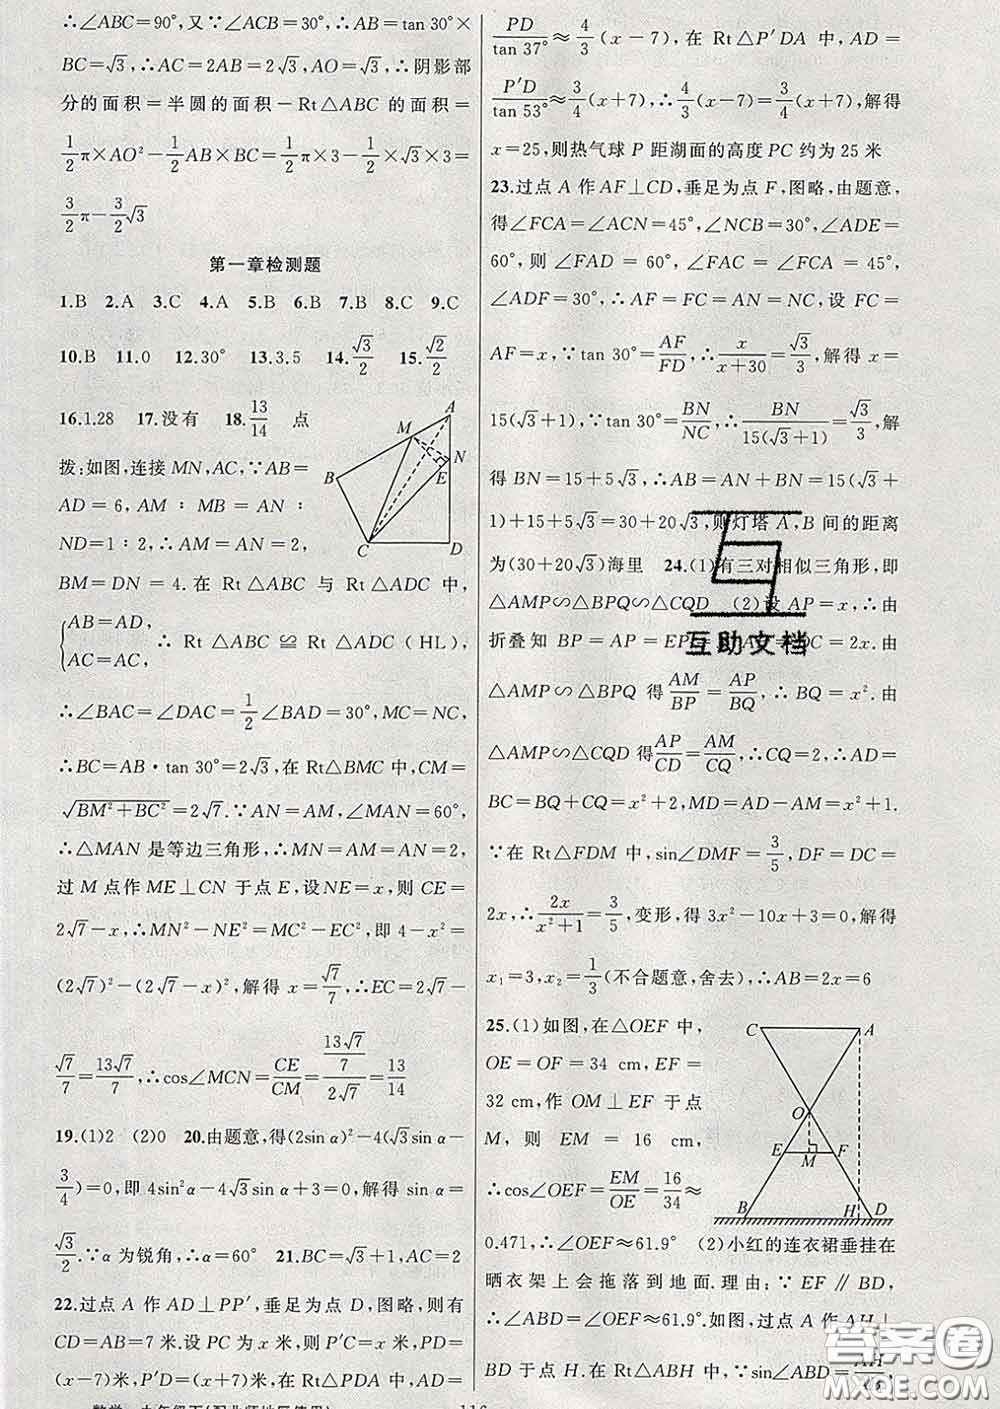 ∴∠ABC=90°,又∵∠ACB=30°,∴AB=tan 30°×
BC=√3,∴AC=2AB=2√3,AO=√3,∴阴影部
分的面积=半圆的面积-Rt△ABC 的面积=
1/2π×AO²-1/2AB×BC=1/2π×3-1/2×√3×3=
3/2π-3/2√3
第一章检测题
1.B 2.A 3.C 4.A 5.B 6.B 7.B 8.C 9.C
10.B 11.0 12.30° 13.3.5 14.√3/2 15.√2/2
16.1.28 17.没有 18.13/14 点
拨:如图,连接 MN,AC,∵AB=
AD=6,AM∶MB=AN∶
ND=1∶2,∴AM=AN=2,
BM=DN=4.在 Rt△ABC 与 Rt△ADC 中,
{AB=AD, AC=AC, ∴Rt△ABC≌Rt△ADC(HL),
∴∠BAC=∠DAC=1/2∠BAD=30°,MC=NC,
∴BC=AB·tan 30°=2√3,在 Rt△BMC 中,CM=
√(BM²+BC²)=2√7.∵AN=AM,∠MAN=60°,
∴△MAN 是等边三角形,∴MN=AM=AN=2,
过 M 点作 ME⊥CN 于点 E,设 NE=x,则 CE=
2√7-x,∴MN²-NE²=MC²-EC²,即 4-x²=
(2√7)²-(2√7-x)²,解得 x=√7/7,∴EC=2√7-
√7/7=13√7/7,∴cos∠MCN=CE/CM=(13√7/7)/(2√7)=13/14
19.(1)2 (2)0 20.由题意,得(2sin α)²-4(√3sin α-
3/4)=0,即 4sin²α-4√3sin α+3=0,解得 sin α=
√3/2.∵α 为锐角,∴α=60° 21.BC=√3+1,AC=2
22.过点 A 作 AD⊥PP′,垂足为点 D,图略,则有
CD=AB=7 米.设 PC 为 x 米,则 P′C=x 米,PD=
(x-7)米,P′D=(x+7)米,在 Rt△PDA 中,AD=
PD/tan 37°≈4/3(x-7),在 Rt△P′DA 中,AD=
P′D/tan 53°≈3/4(x+7),∴4/3(x-7)=3/4(x+7),解得
x=25,则热气球 P 距湖面的高度 PC 约为 25 米
23.过点 A 作 AF⊥CD,垂足为点 F,图略,由题意,
得∠FCA=∠ACN=45°,∠NCB=30°,∠ADE=
60°,则 ∠FAD=60°,∠FAC=∠FCA=45°,
∠ADF=30°,∴AF=FC=AN=NC,设 FC=
AF=x,∵tan 30°=AF/FD,∴x/(x+30)=√3/3,解得 x=
15(√3+1),∵tan 30°=BN/NC,∴BN/15(√3+1)=√3/3,解
得 BN=15+5√3,∴AB=AN+BN=15(√3+
1)+15+5√3=30+20√3,则灯塔 A,B 间的距离
为(30+20√3)海里 24.(1)有三对相似三角形,即
△AMP∽△BPQ∽△CQD (2)设 AP=x,∴由
折叠知 BP=AP=EP= DC=2x.由
△AMP∽△BPQ 得 AM/BP=AP/BQ,∴BQ=x².由
△AMP∽△CQD 得 AP/CD=AM/CQ,∴CQ=2,∴AD=
BC=BQ+CQ=x²+2,MD=AD-AM=x²+1.
∵在 Rt△FDM 中,sin∠DMF=3/5,DF=DC=
2x,∴2x/(x²+1)=3/5,变形,得 3x²-10x+3=0,解得
x₁=3,x₂=1/3(不合题意,舍去),∴AB=2x=6
25.(1)如图,在△OEF 中,
OE=OF=34 cm,EF=
32 cm,作 OM⊥EF 于点
M,则 EM=16 cm,
∴cos∠OEF=EM/OE=16/34≈
0.471,∴∠OEF≈61.9° (2)小红的连衣裙垂挂在
晒衣架上会拖落到地面.理由:∵EF∥BD,
∴∠ABD=∠OEF≈61.9°.如图,过点 A 作 AH⊥
BD 于点 H.在 Rt△ABH 中,∵sin∠ABD=AH/AB
A
M
N
B
E
C
D
C
A
O
E
M
F
B
H
D
互助文档
答案圈
MXQE.COM
数学 九年级下(配北师地区使用)
116